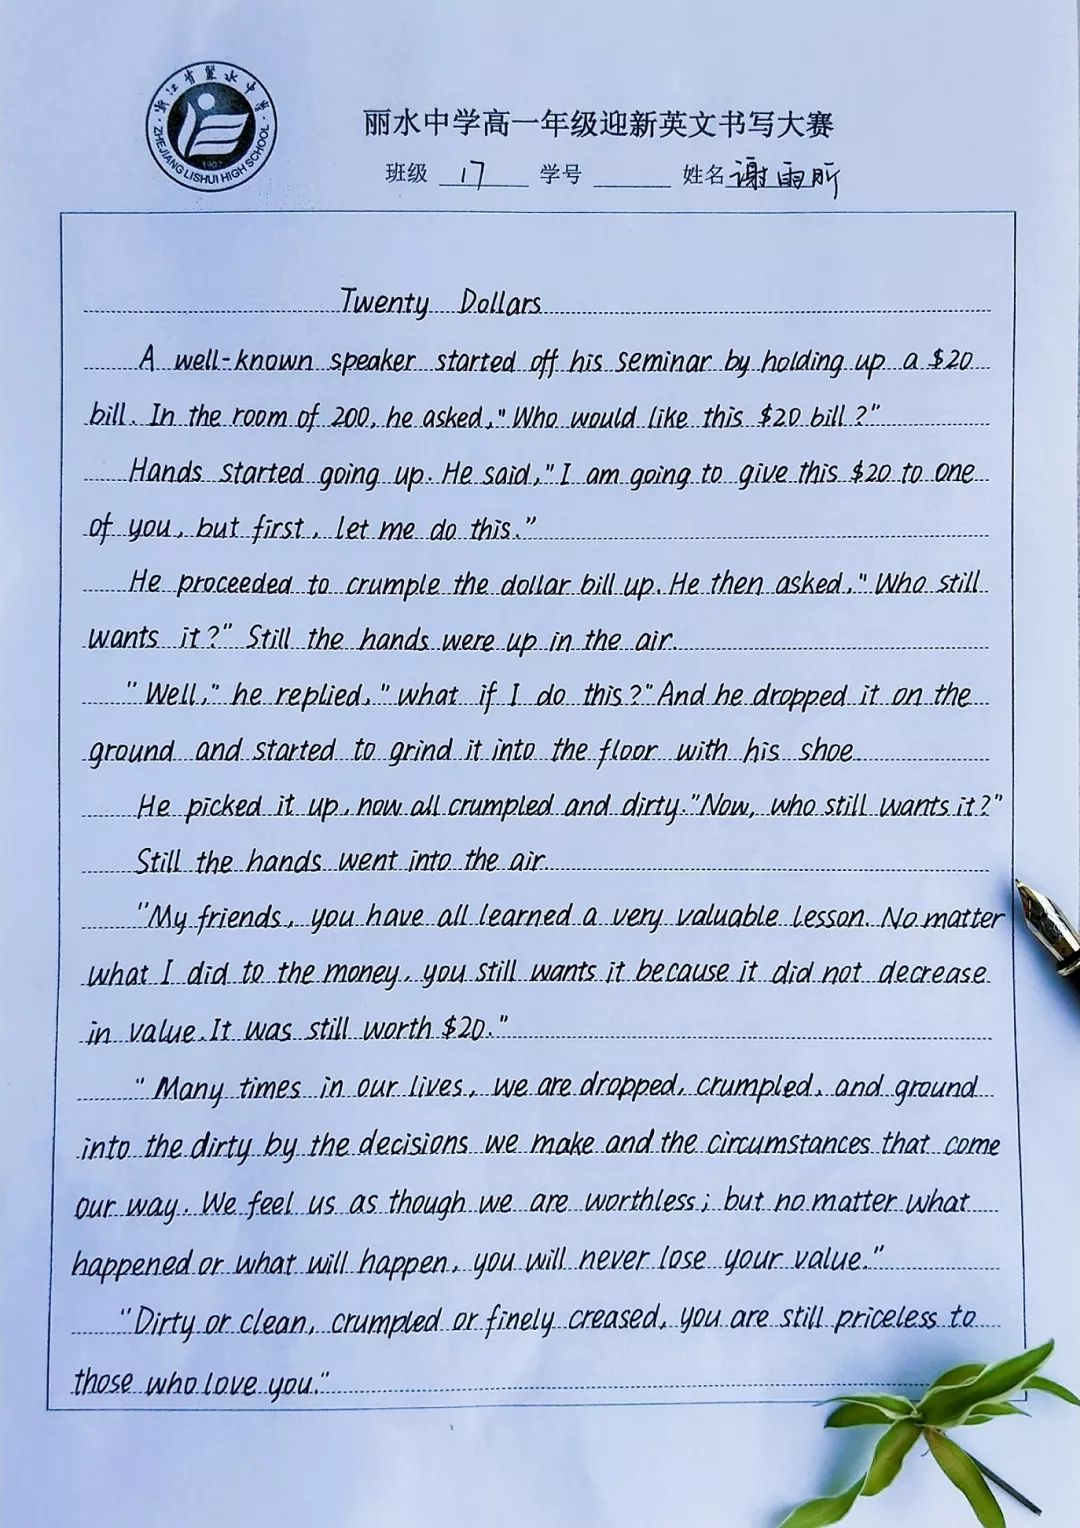 浙江省丽水中学
ZHEJIANG LISHUI HIGH SCHOOL
1902
丽水中学高一年级迎新英文书写大赛
班级 17 学号 姓名 谢雨昕
Twenty Dollars
A well-known speaker started off his seminar by holding up a $20
bill. In the room of 200, he asked, "Who would like this $20 bill?"
Hands started going up. He said, "I am going to give this $20 to one
of you, but first, let me do this."
He proceeded to crumple the dollar bill up. He then asked, "Who still
wants it?" Still the hands were up in the air.
"Well," he replied, "what if I do this?" And he dropped it on the
ground and started to grind it into the floor with his shoe.
He picked it up, now all crumpled and dirty. "Now, who still wants it?"
Still the hands went into the air.
"My friends, you have all learned a very valuable lesson. No matter
what I did to the money, you still wants it because it did not decrease
in value. It was still worth $20."
"Many times in our lives, we are dropped, crumpled, and ground
into the dirty by the decisions we make and the circumstances that come
our way. We feel us as though we are worthless; but no matter what
happened or what will happen, you will never lose your value."
"Dirty or clean, crumpled or finely creased, you are still priceless to
those who love you."